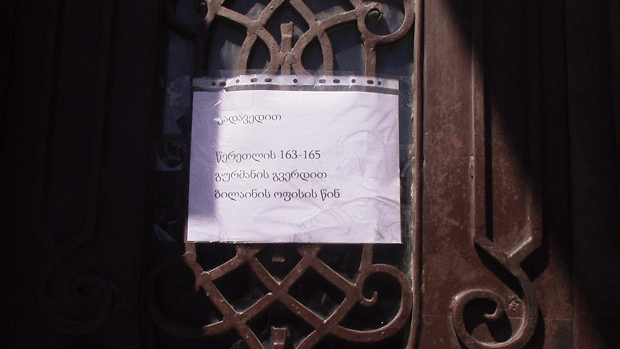 გადავედით
წერეთლის 163-165
გურმანის გვერდით
ბილაინის ოფისის წინ